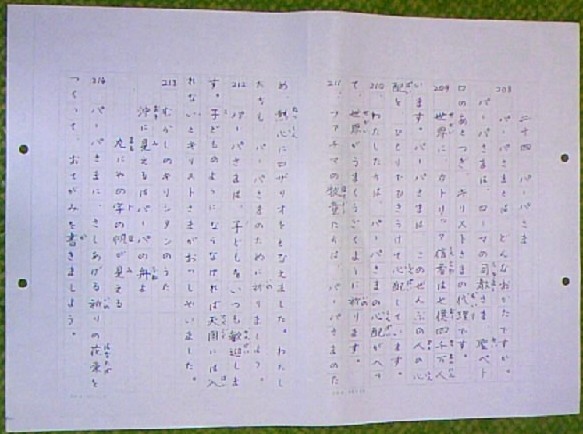 二十四 パーパさま
208 パーパさまとは どんなおかたですか。
パーパさまは、ローマの司教さま 聖ペト
ロのあとつぎ、キリストさまの代理です。
209 世界に カトリック信者は七億四千万人
います。パーパさまは このぜんぶの人の心
配を ひとりでひきうけて心配しています。
210 わたしたちは、パーパさまの心配がへっ
て、世界がうまくうごくように祈ります。
211 ファチマの牧童たちは、パーパさまのた
め 熱心にロザリオをとなえました。わたし
たちも パーパさまのために祈りましょう。
212 パーパさまは、子どもをいつも歓迎しま
す。子どものようにならなければ天国には入
れないとキリストさまがおっしゃいました。
213 むかしのキリシタンのうた
沖に見えるはパーパの舟よ
丸にやの字の帆が見える
214 パーパさまに、さしあげる祈りの花束を
つくって、おてがみを書きましょう。